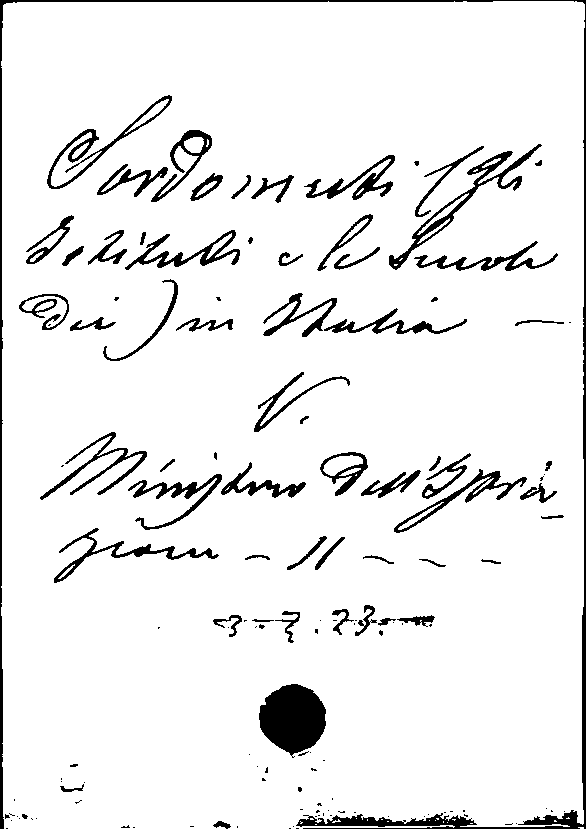 Sordomuti (gli
Istituti e le Scuole
dei) in Italia —
V.
Ministero dell'Istru-
zione – 11 – – – –
3.7.23.